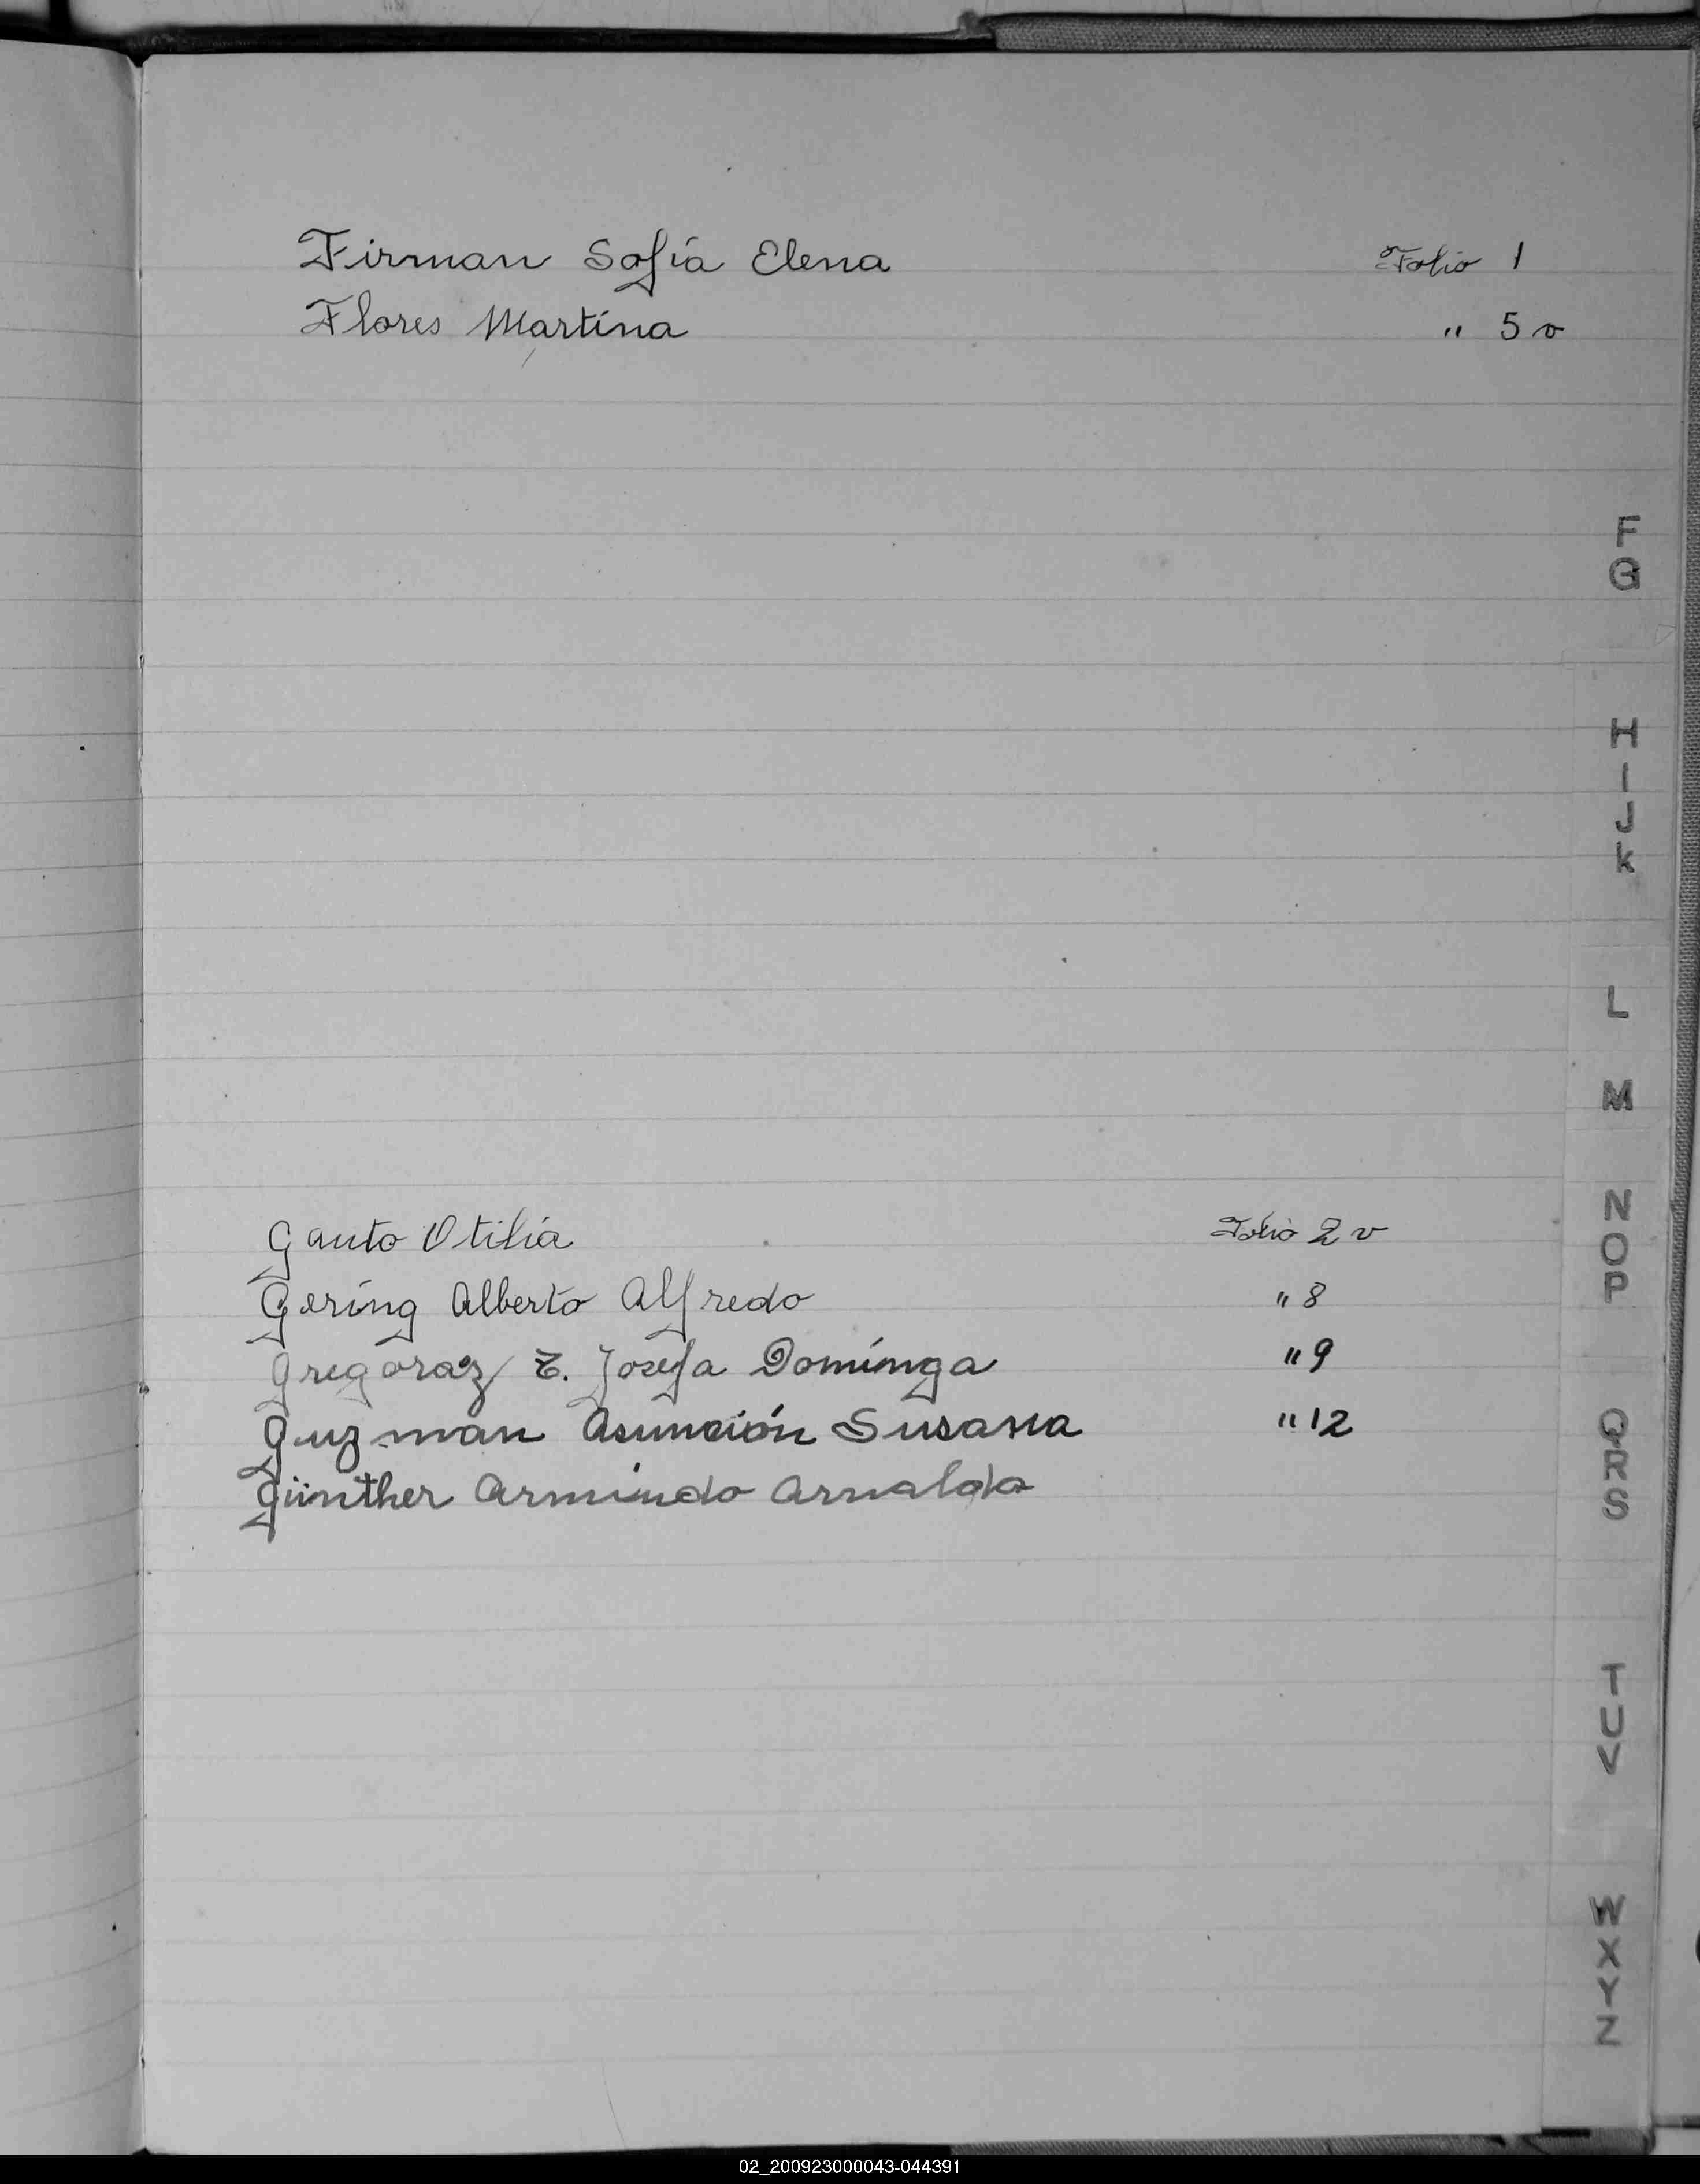 Firman Sofía Elena Folio 1
Flores Martina " 5 v
F
G
H
I
J
K
L
M
N
O
P
Gauto Otilia Folio 2 v
Gering Alberto Alfredo " 8
Gregoraz Z. Josefa Dominga " 9
Guzman Asunción Susana " 12
Günther Armindo Arnaldo
Q
R
S
T
U
V
W
X
Y
Z
02_200923000043-044391